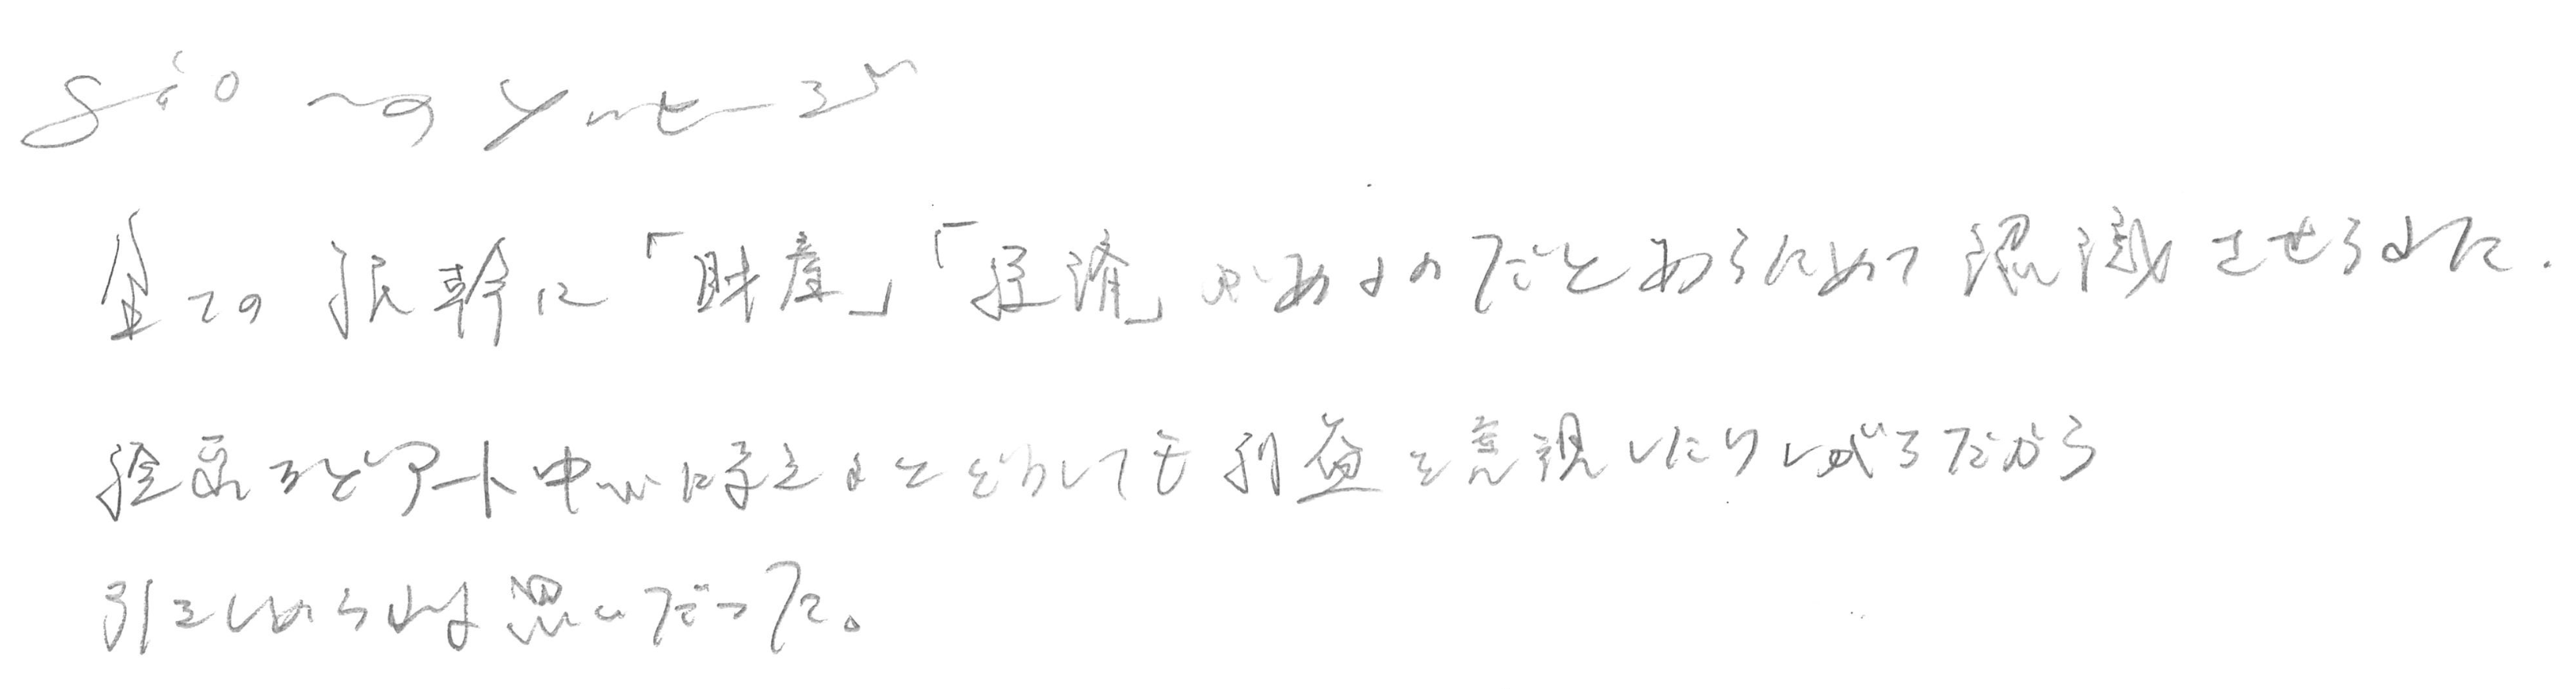 全ての根幹に「財産」「経済」があるのだとあらためて認識させられた.
絵画などアート中心に考えるとどうしても利益を意視したりしがちだから
引きしめられる思いだった。